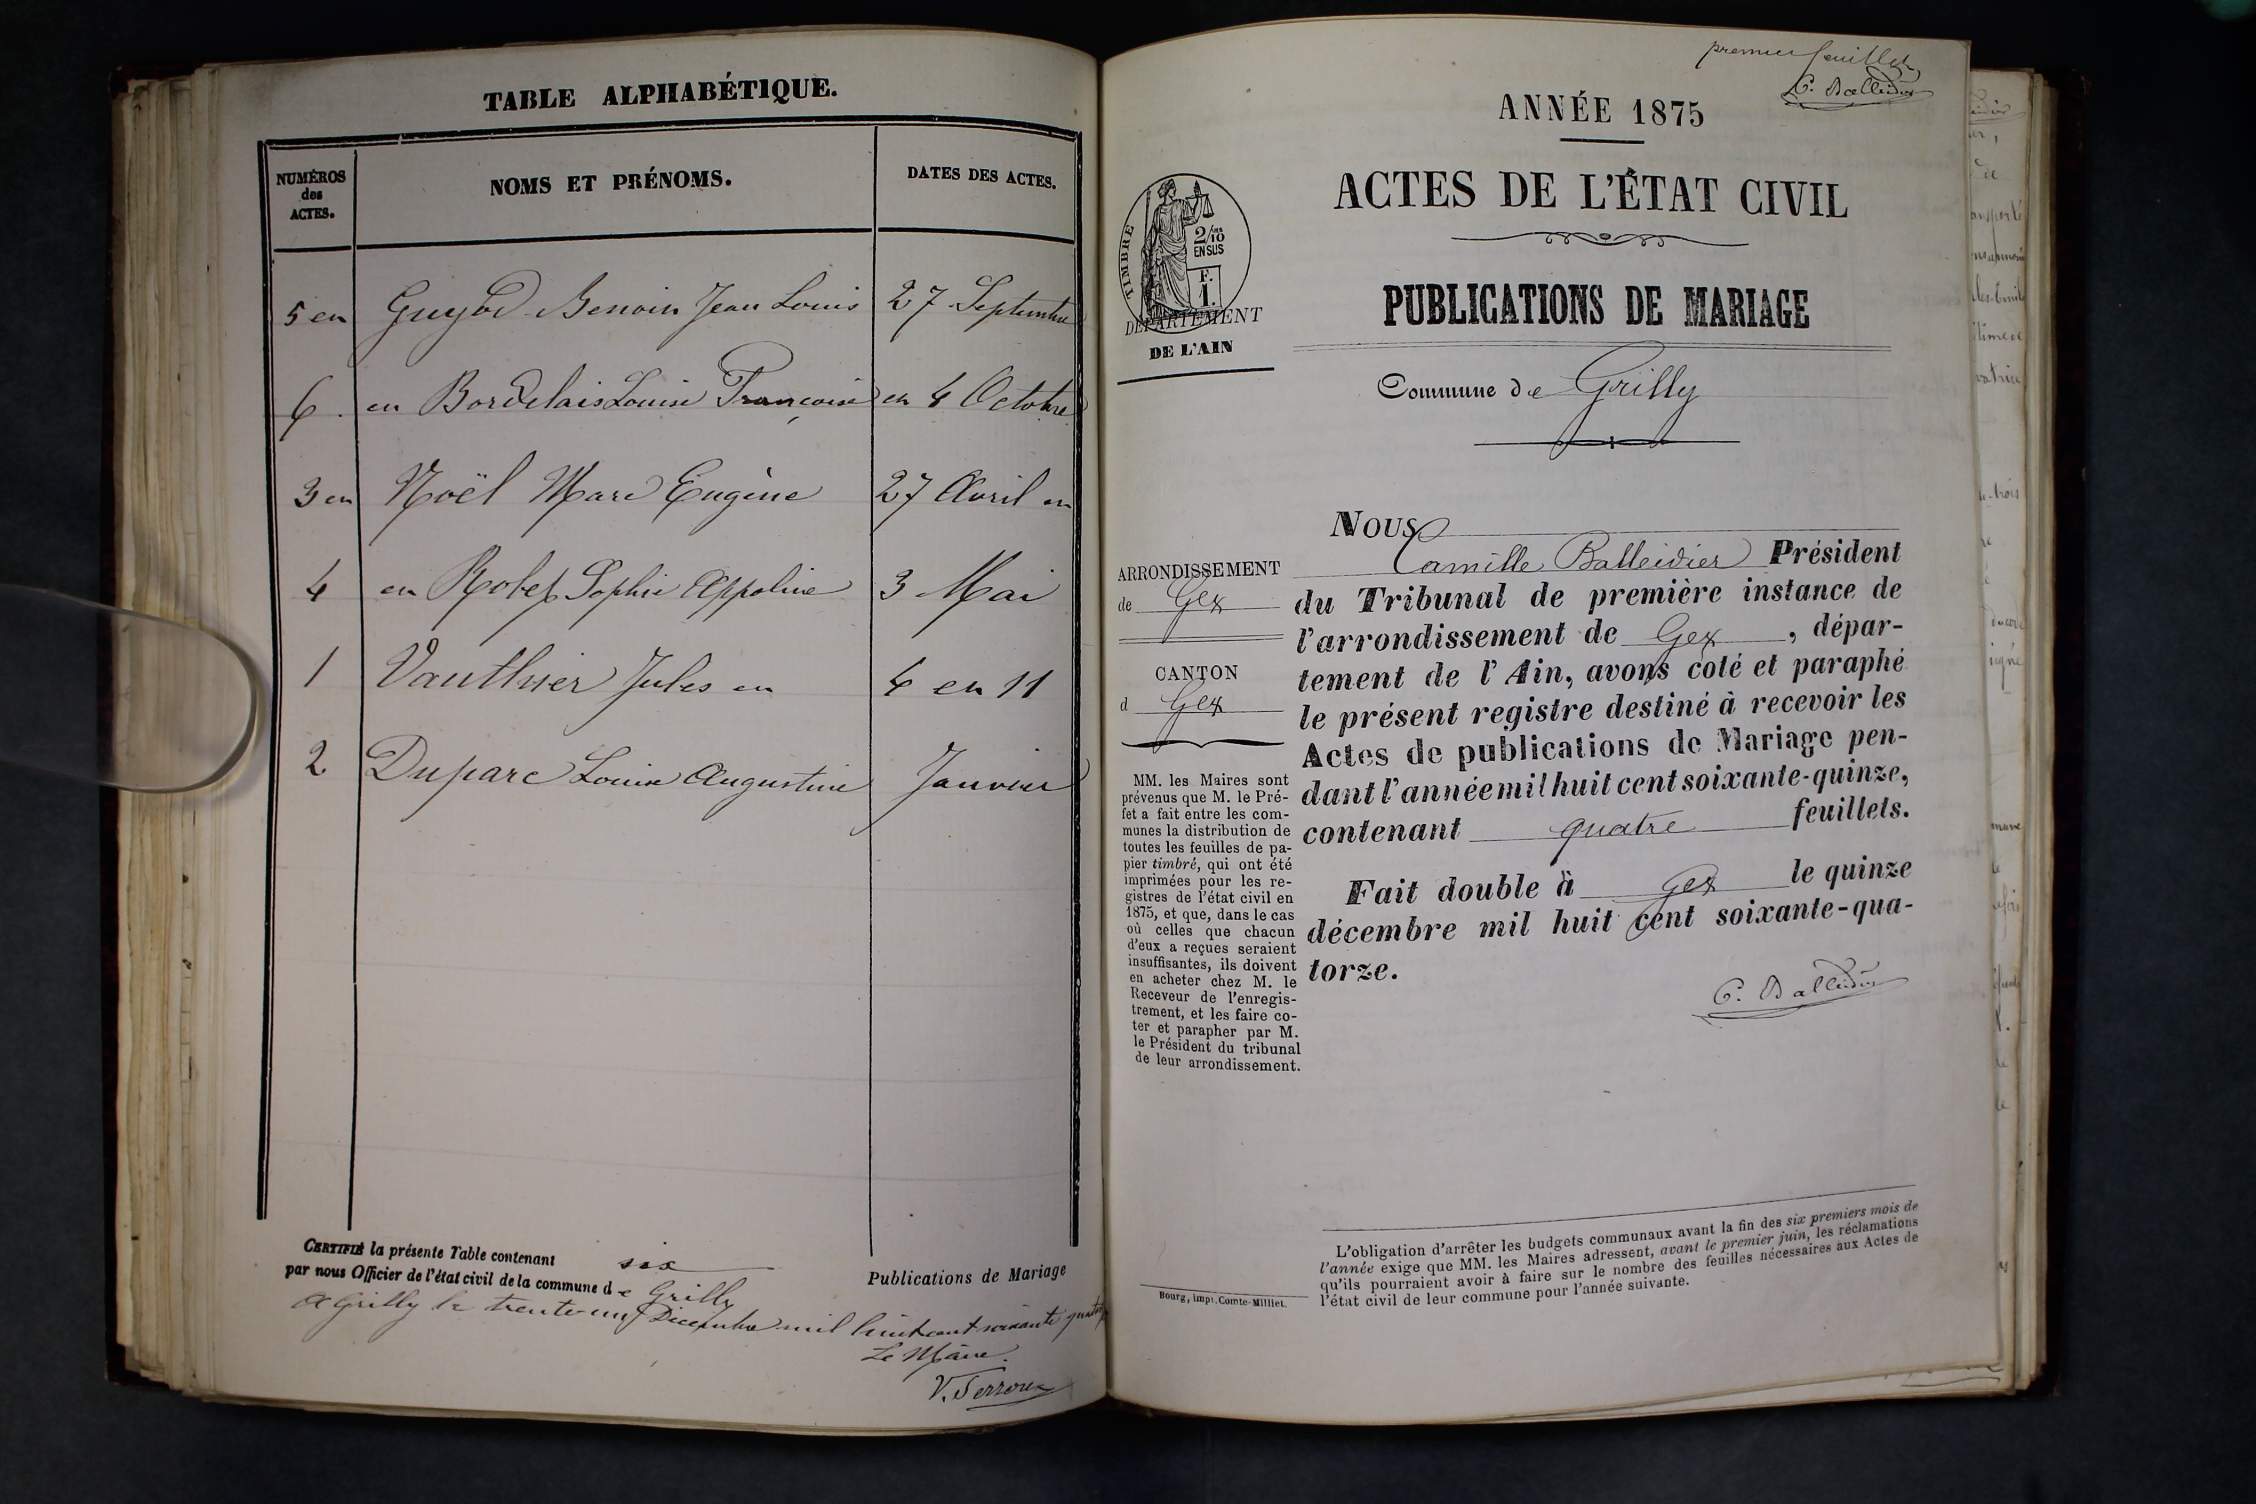 TABLE ALPHABÉTIQUE.
NUMÉROS des ACTES.
NOMS ET PRÉNOMS.
DATES DES ACTES.
5 en Guyod Benoit Jean Louis 27 Septembre
6. en Bordelais Louise Françoise en 4 Octobre
3 en Noël Marc Eugène 27 Avril en
4 en Robez Sophie Appoline 3 Mai
1 Vauthier Jules en 4 en 11
2 Duparc Louise Augustine Janvier
CERTIFIÉ la présente Table contenant six Publications de Mariage
par nous Officier de l'état civil de la commune de Grilly
A Grilly le trente-un Décembre mil huit cent soixante
Le Maire.
premier feuillet
C. Balleidier
ANNÉE 1875
ACTES DE L'ÉTAT CIVIL
PUBLICATIONS DE MARIAGE
Commune de Grilly
TIMBRE
2/10
EN SUS
F.
1.
DÉPARTEMENT
DE L'AIN
ARRONDISSEMENT
de Gex
CANTON
d Gex
MM. les Maires sont
prévenus que M. le Pré-
fet a fait entre les com-
munes la distribution de
toutes les feuilles de pa-
pier timbré, qui ont été
imprimées pour les re-
gistres de l'état civil en
1875, et que, dans le cas
où celles que chacun
d'eux a reçues seraient
insuffisantes, ils doivent
en acheter chez M. le
Receveur de l'enregis-
trement, et les faire co-
ter et parapher par M.
le Président du tribunal
de leur arrondissement.
Bourg, impr. Comte-Milliet.
NOUS
Camille Balleidier Président
du Tribunal de première instance de
l'arrondissement de Gex, dépar-
tement de l'Ain, avons coté et paraphé
le présent registre destiné à recevoir les
Actes de publications de Mariage pen-
dant l'année mil huit cent soixante-quinze,
contenant quatre feuillets.
Fait double à Gex le quinze
décembre mil huit cent soixante-qua-
torze.
C. Balleidier
L'obligation d'arrêter les budgets communaux avant la fin des six premiers mois de
l'année exige que MM. les Maires adressent, avant le premier juin, les réclamations
qu'ils pourraient avoir à faire sur le nombre des feuilles nécessaires aux Actes de
l'état civil de leur commune pour l'année suivante.